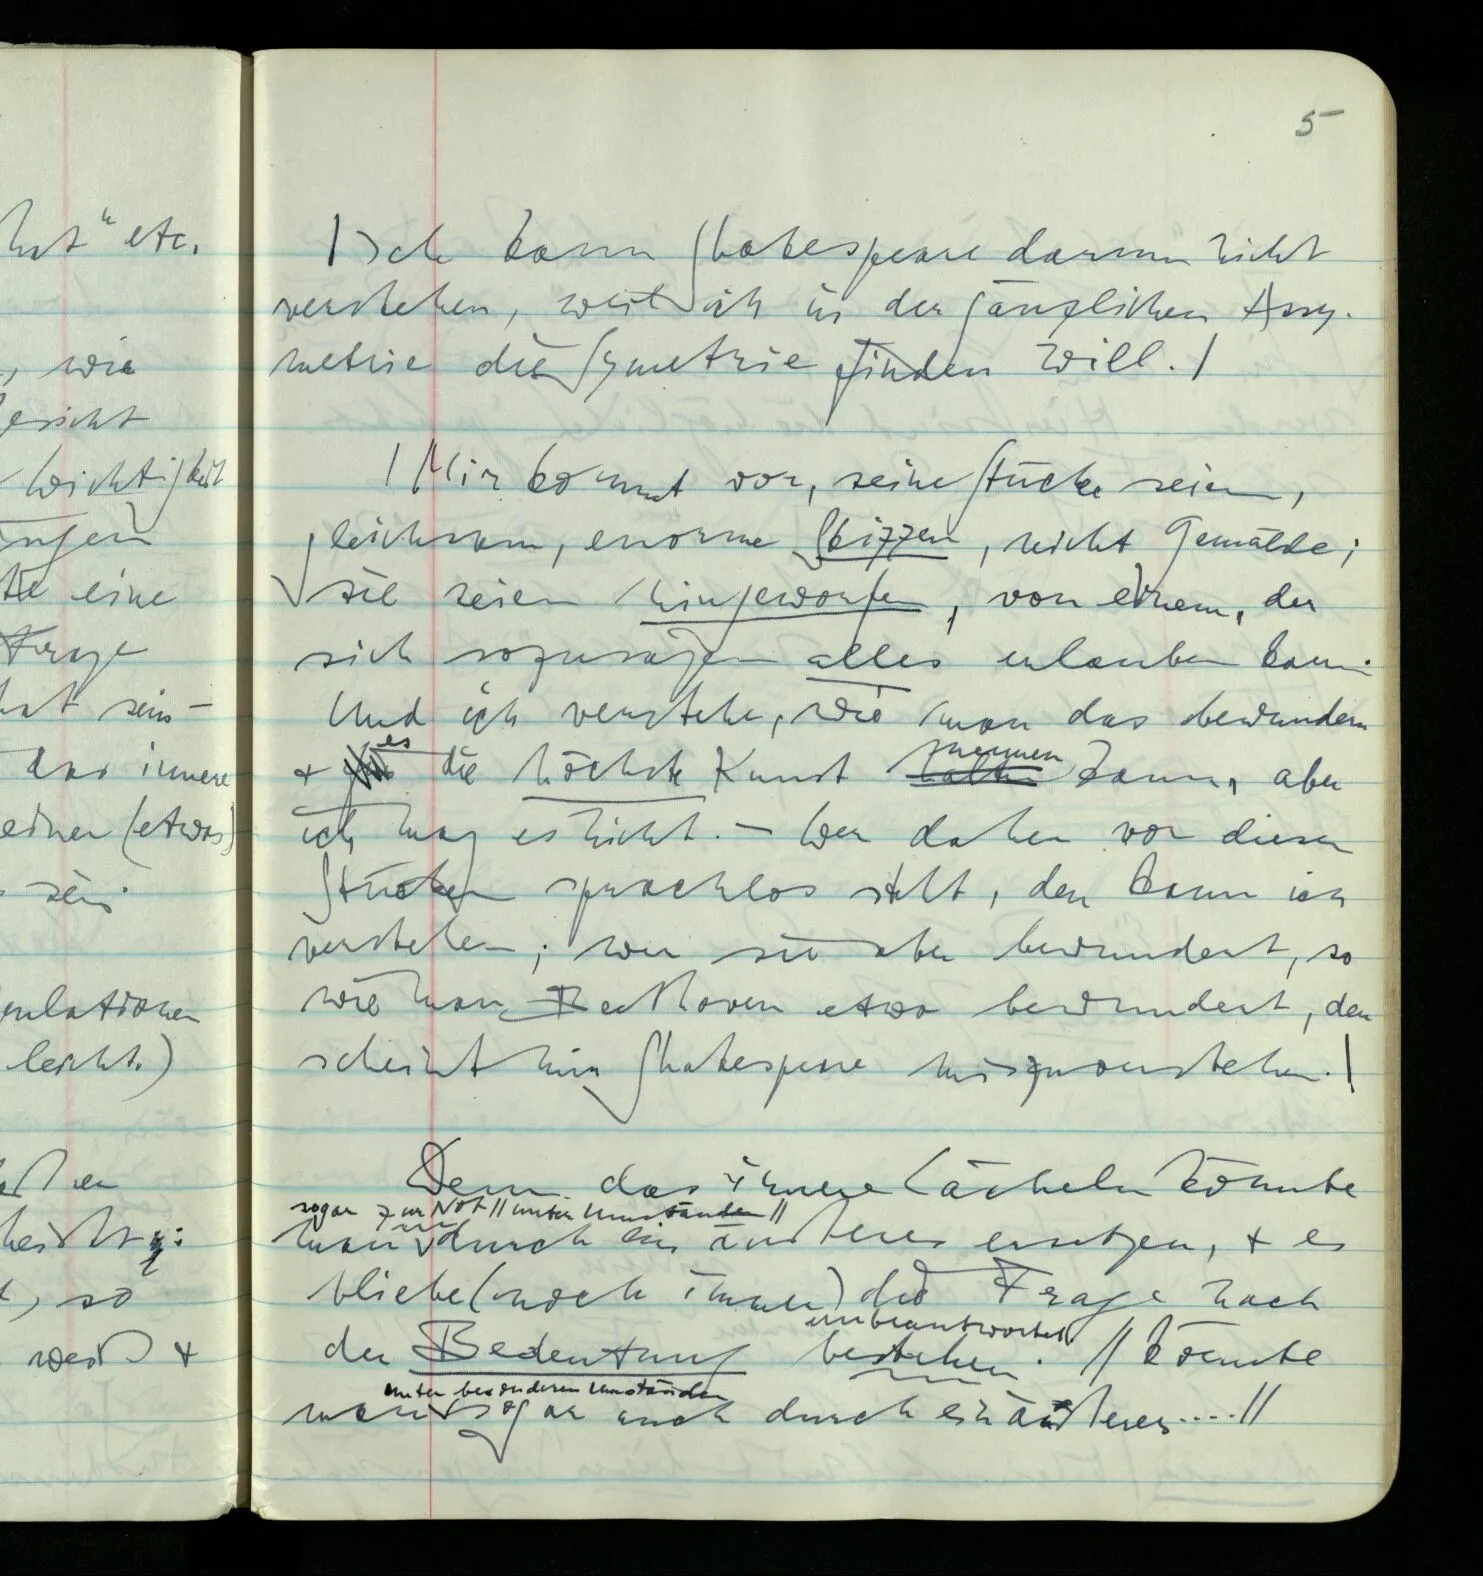 hst" etc.
, wie
Gesicht
Wichtigkeit
ungen
te eine
Frage
hat sein-
das innere
einer (etwas)
sein.
ulationen
leicht.)
so
weiß +
5
| Ich kann Shakespeare darum nicht
verstehen, weil ich in der gänzlichen Assy-
metrie die Symetrie finden will. |
| Mir kommt vor, seine Stücke seien,
gleichsam, enorme Skizzen, nicht Gemälde;
sie seien hingeworfen, von einem, der
sich sozusagen alles erlauben kann.
Und ich verstehe, wie man das bewundern
+ es die höchste Kunst halten nennen kann, aber
ich mag es nicht. – Wer daher vor diesen
Stücken sprachlos steht, den kann ich
verstehen; wer sie aber bewundert, so
wie man Beethoven etwa bewundert, der
scheint mir Shakespeare misszuverstehen. |
Denn das innere Lächeln könnte
sogar zur Not // unter Umständen //
man durch ein äusseres ersetzen, + es
bliebe (noch immer) die Frage nach
unbeantwortet
der Bedeutung bestehen. // könnte
unter besonderen Umständen
man sogar auch durch ein äusseres .... //